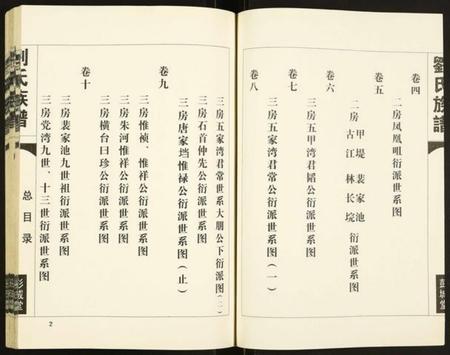 劉氏族譜
卷四
二房凤凰咀衍派世系图
卷五
二房 甲堤 裴家池 古江 林长垸 衍派世系图
卷六
三房五甲湾君韬公衍派世系图
卷七
三房五家湾君常公衍派世系图(一)
卷八
三房五家湾君常世系大朋公下衍派图(二)
三房石首仲先公衍派世系图
三房唐家垱惟禄公衍派世系图(止)
卷九
三房惟祯、惟祥公衍派世系图
三房朱河惟祥公衍派世系图
三房横台曰珍公衍派世系图
卷十
三房裴家池九世祖衍派世系图
三房党湾九世、十三世衍派世系图
劉氏族譜
总目录
彭城堂
彭城堂
2